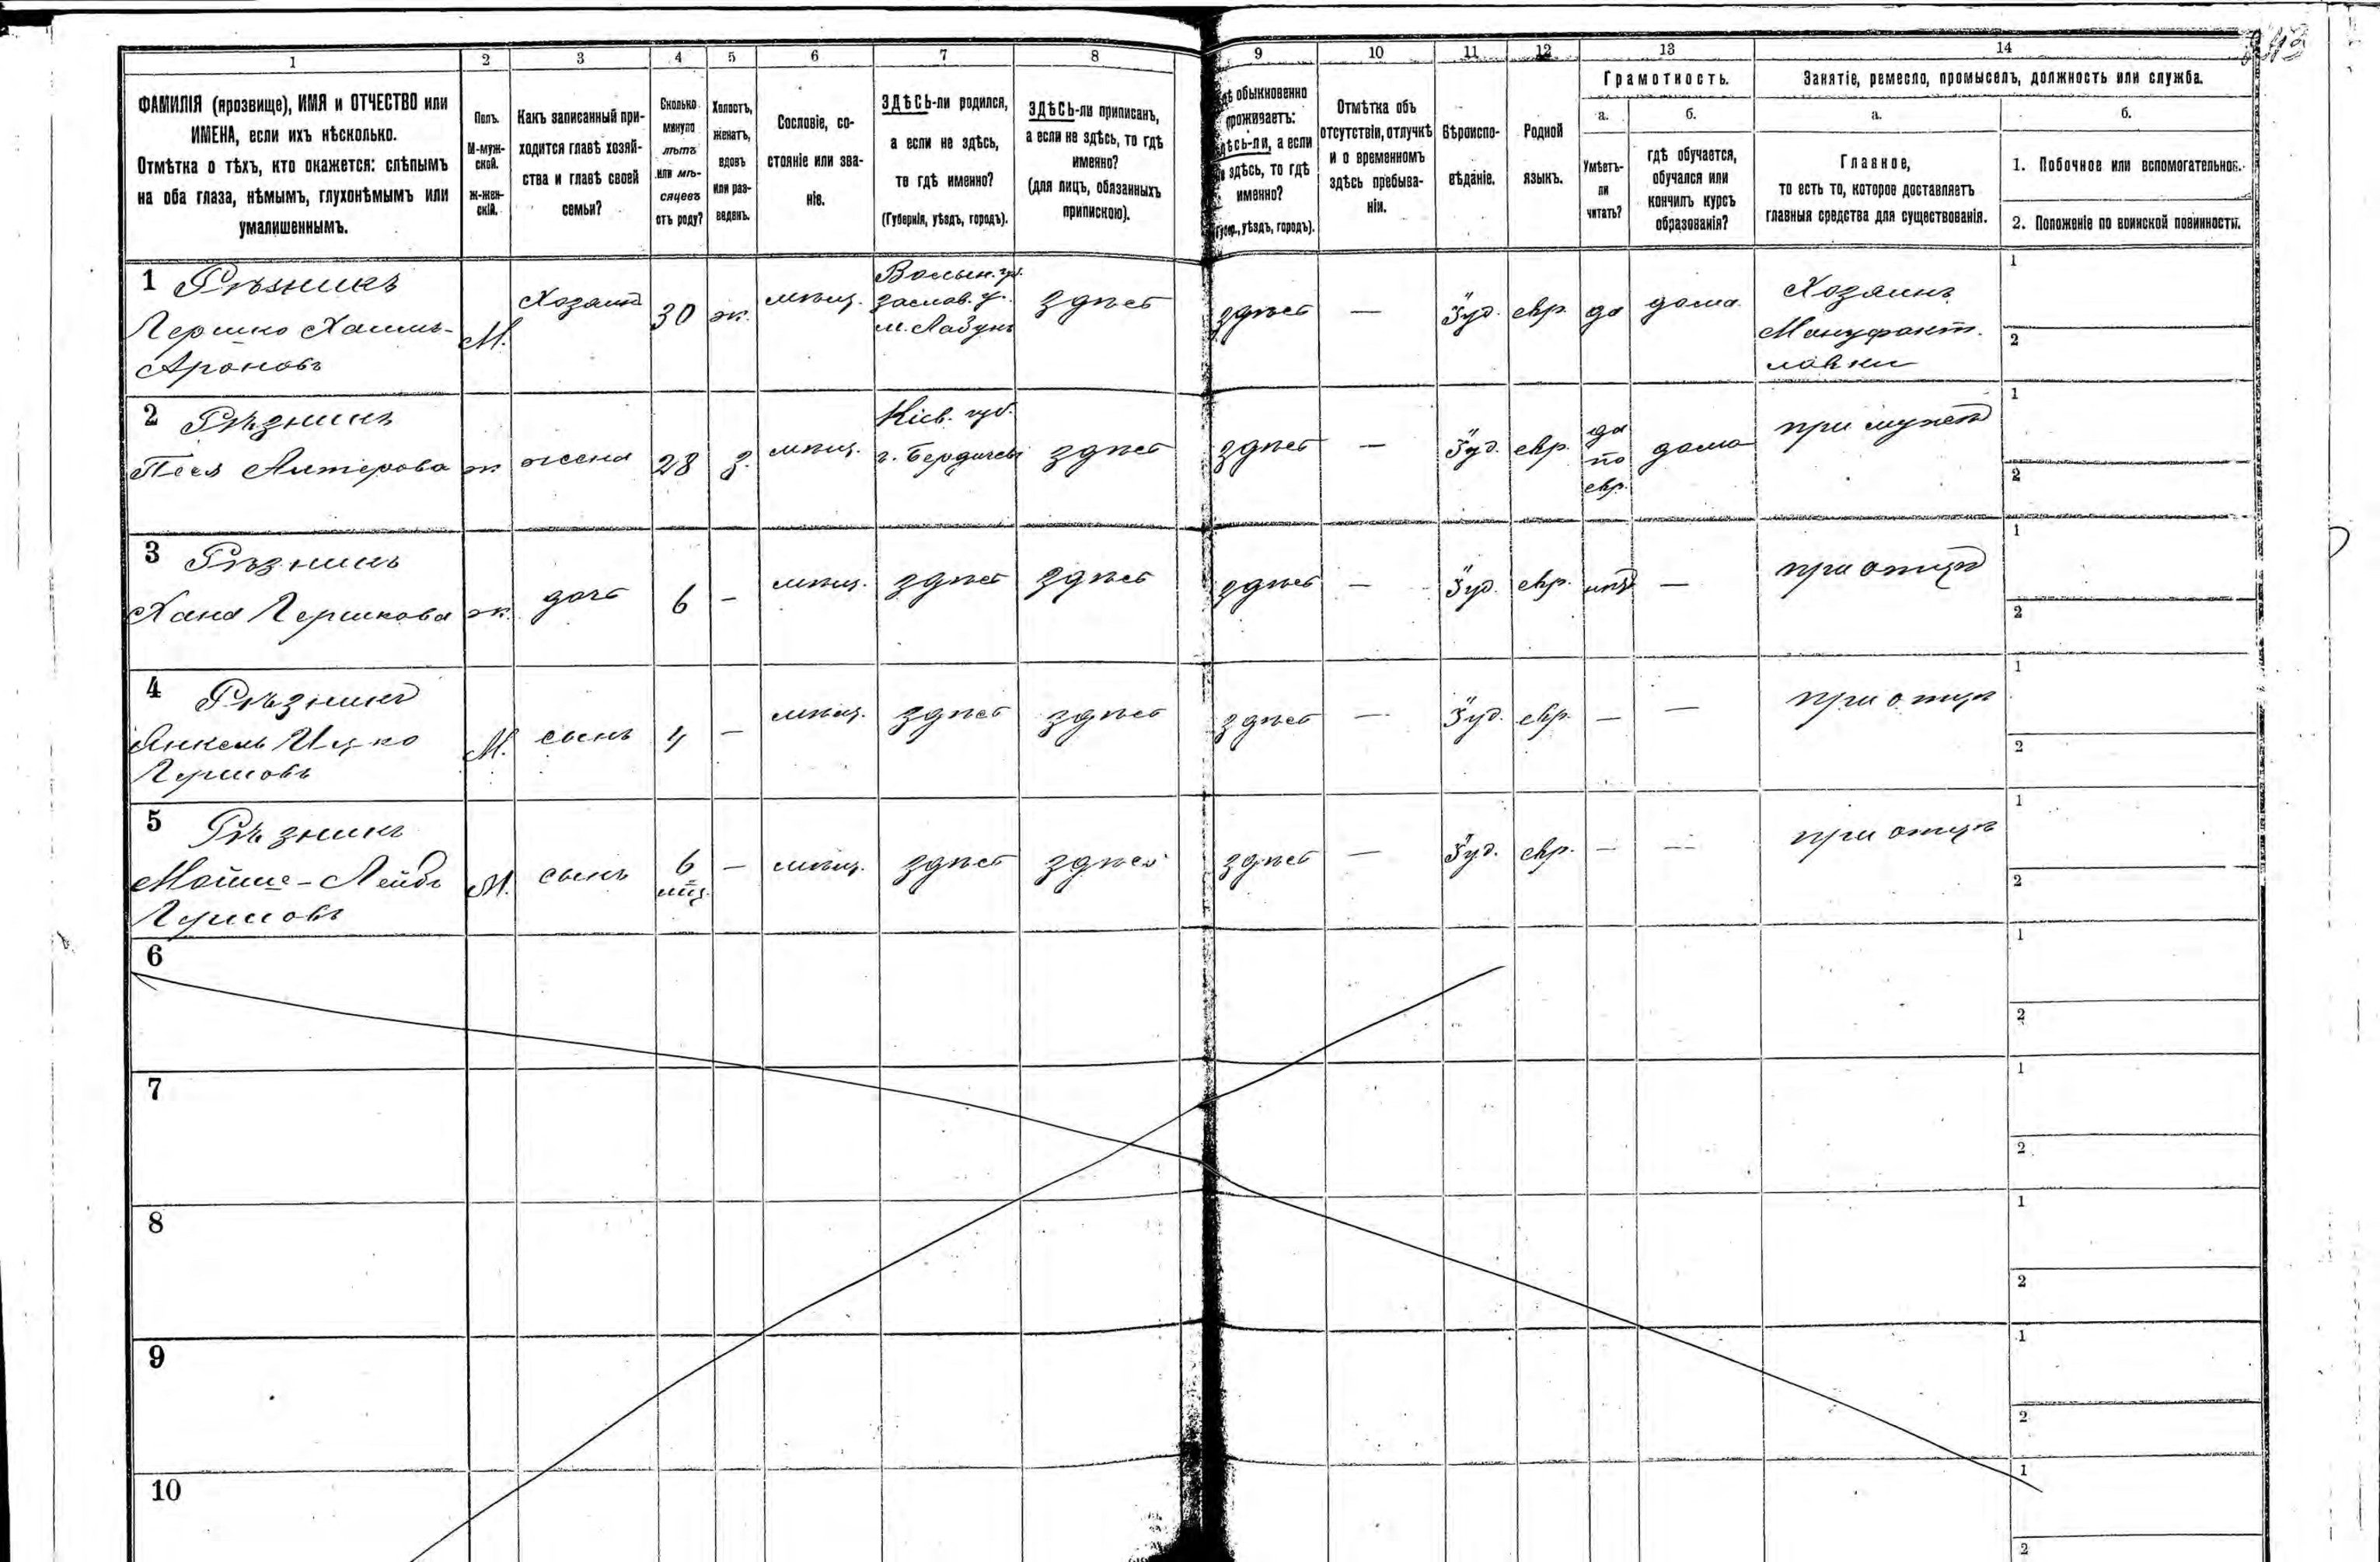 1
2
3
4
5
6
7
8
9
10
11
12
13
14
ФАМИЛІЯ (прозвище), ИМЯ и ОТЧЕСТВО или
ИМЕНА, если ихъ нѣсколько.
Отмѣтка о тѣхъ, кто окажется: слѣпымъ
на оба глаза, нѣмымъ, глухонѣмымъ или
умалишеннымъ.
Полъ.
М-муж-
ской.
Ж-жен-
скій.
Какъ записанный при-
ходится главѣ хозяй-
ства и главѣ своей
семьи?
Сколько
минуло
лѣтъ
или мѣ-
сяцевъ
отъ роду?
Холостъ,
женатъ,
вдовъ
или раз-
веденъ.
Сословіе, со-
стояніе или зва-
ніе.
ЗДѢСЬ-ли родился,
а если не здѣсь,
то гдѣ именно?
(Губернія, уѣздъ, городъ).
ЗДѢСЬ-ли приписанъ,
а если не здѣсь, то гдѣ
именно?
(для лицъ, обязанныхъ
припискою).
обыкновенно
проживаетъ:
здѣсь-ли, а если
здѣсь, то гдѣ
именно?
уѣздъ, городъ).
Отмѣтка объ
отсутствіи, отлучкѣ
и о временномъ
здѣсь пребыва-
ніи.
Вѣроиспо-
вѣданіе.
Родной
языкъ.
Грамотность.
а.
Умѣетъ-
ли
читать?
б.
гдѣ обучается,
обучался или
кончилъ курсъ
образованія?
Занятіе, ремесло, промыселъ, должность или служба.
а.
Главное,
то есть то, которое доставляетъ
главныя средства для существованія.
б.
1. Побочное или вспомогательное.
2. Положеніе по воинской повинности.
1 Рѣзникъ
Гершко Хаимъ-
Ароновъ
М.
Хозяинъ
30
ж.
мѣщ.
Волын. губ.
Заслав. у.
м. Лабунь
здѣсь
здѣсь
—
Іуд.
евр.
да
дома
Хозяинъ
Мануфакт.
лавки
1
2
2 Рѣзникъ
Песя Алтерова
ж
жена
28
з.
мѣщ.
Кіев. губ.
г. Бердичевъ
здѣсь
здѣсь
—
Іуд.
евр.
да
по
евр.
дома
при мужѣ
1
2
3 Рѣзникъ
Хана Гершкова
ж.
дочь
6
—
мѣщ.
здѣсь
здѣсь
здѣсь
—
Іуд.
евр.
нѣтъ
—
при отцѣ
1
2
4 Рѣзникъ
Янкель Ицко
Гершовъ
М.
сынъ
4
—
мѣщ.
здѣсь
здѣсь
здѣсь
—
Іуд.
евр.
—
—
при отцѣ
1
2
5 Рѣзникъ
Мойше-Лейбъ
Гершовъ
М.
сынъ
6
мѣс.
—
мѣщ.
здѣсь
здѣсь
здѣсь
—
Іуд.
евр.
—
—
при отцѣ
1
2
6
1
2
7
1
2
8
1
2
9
1
2
10
1
2